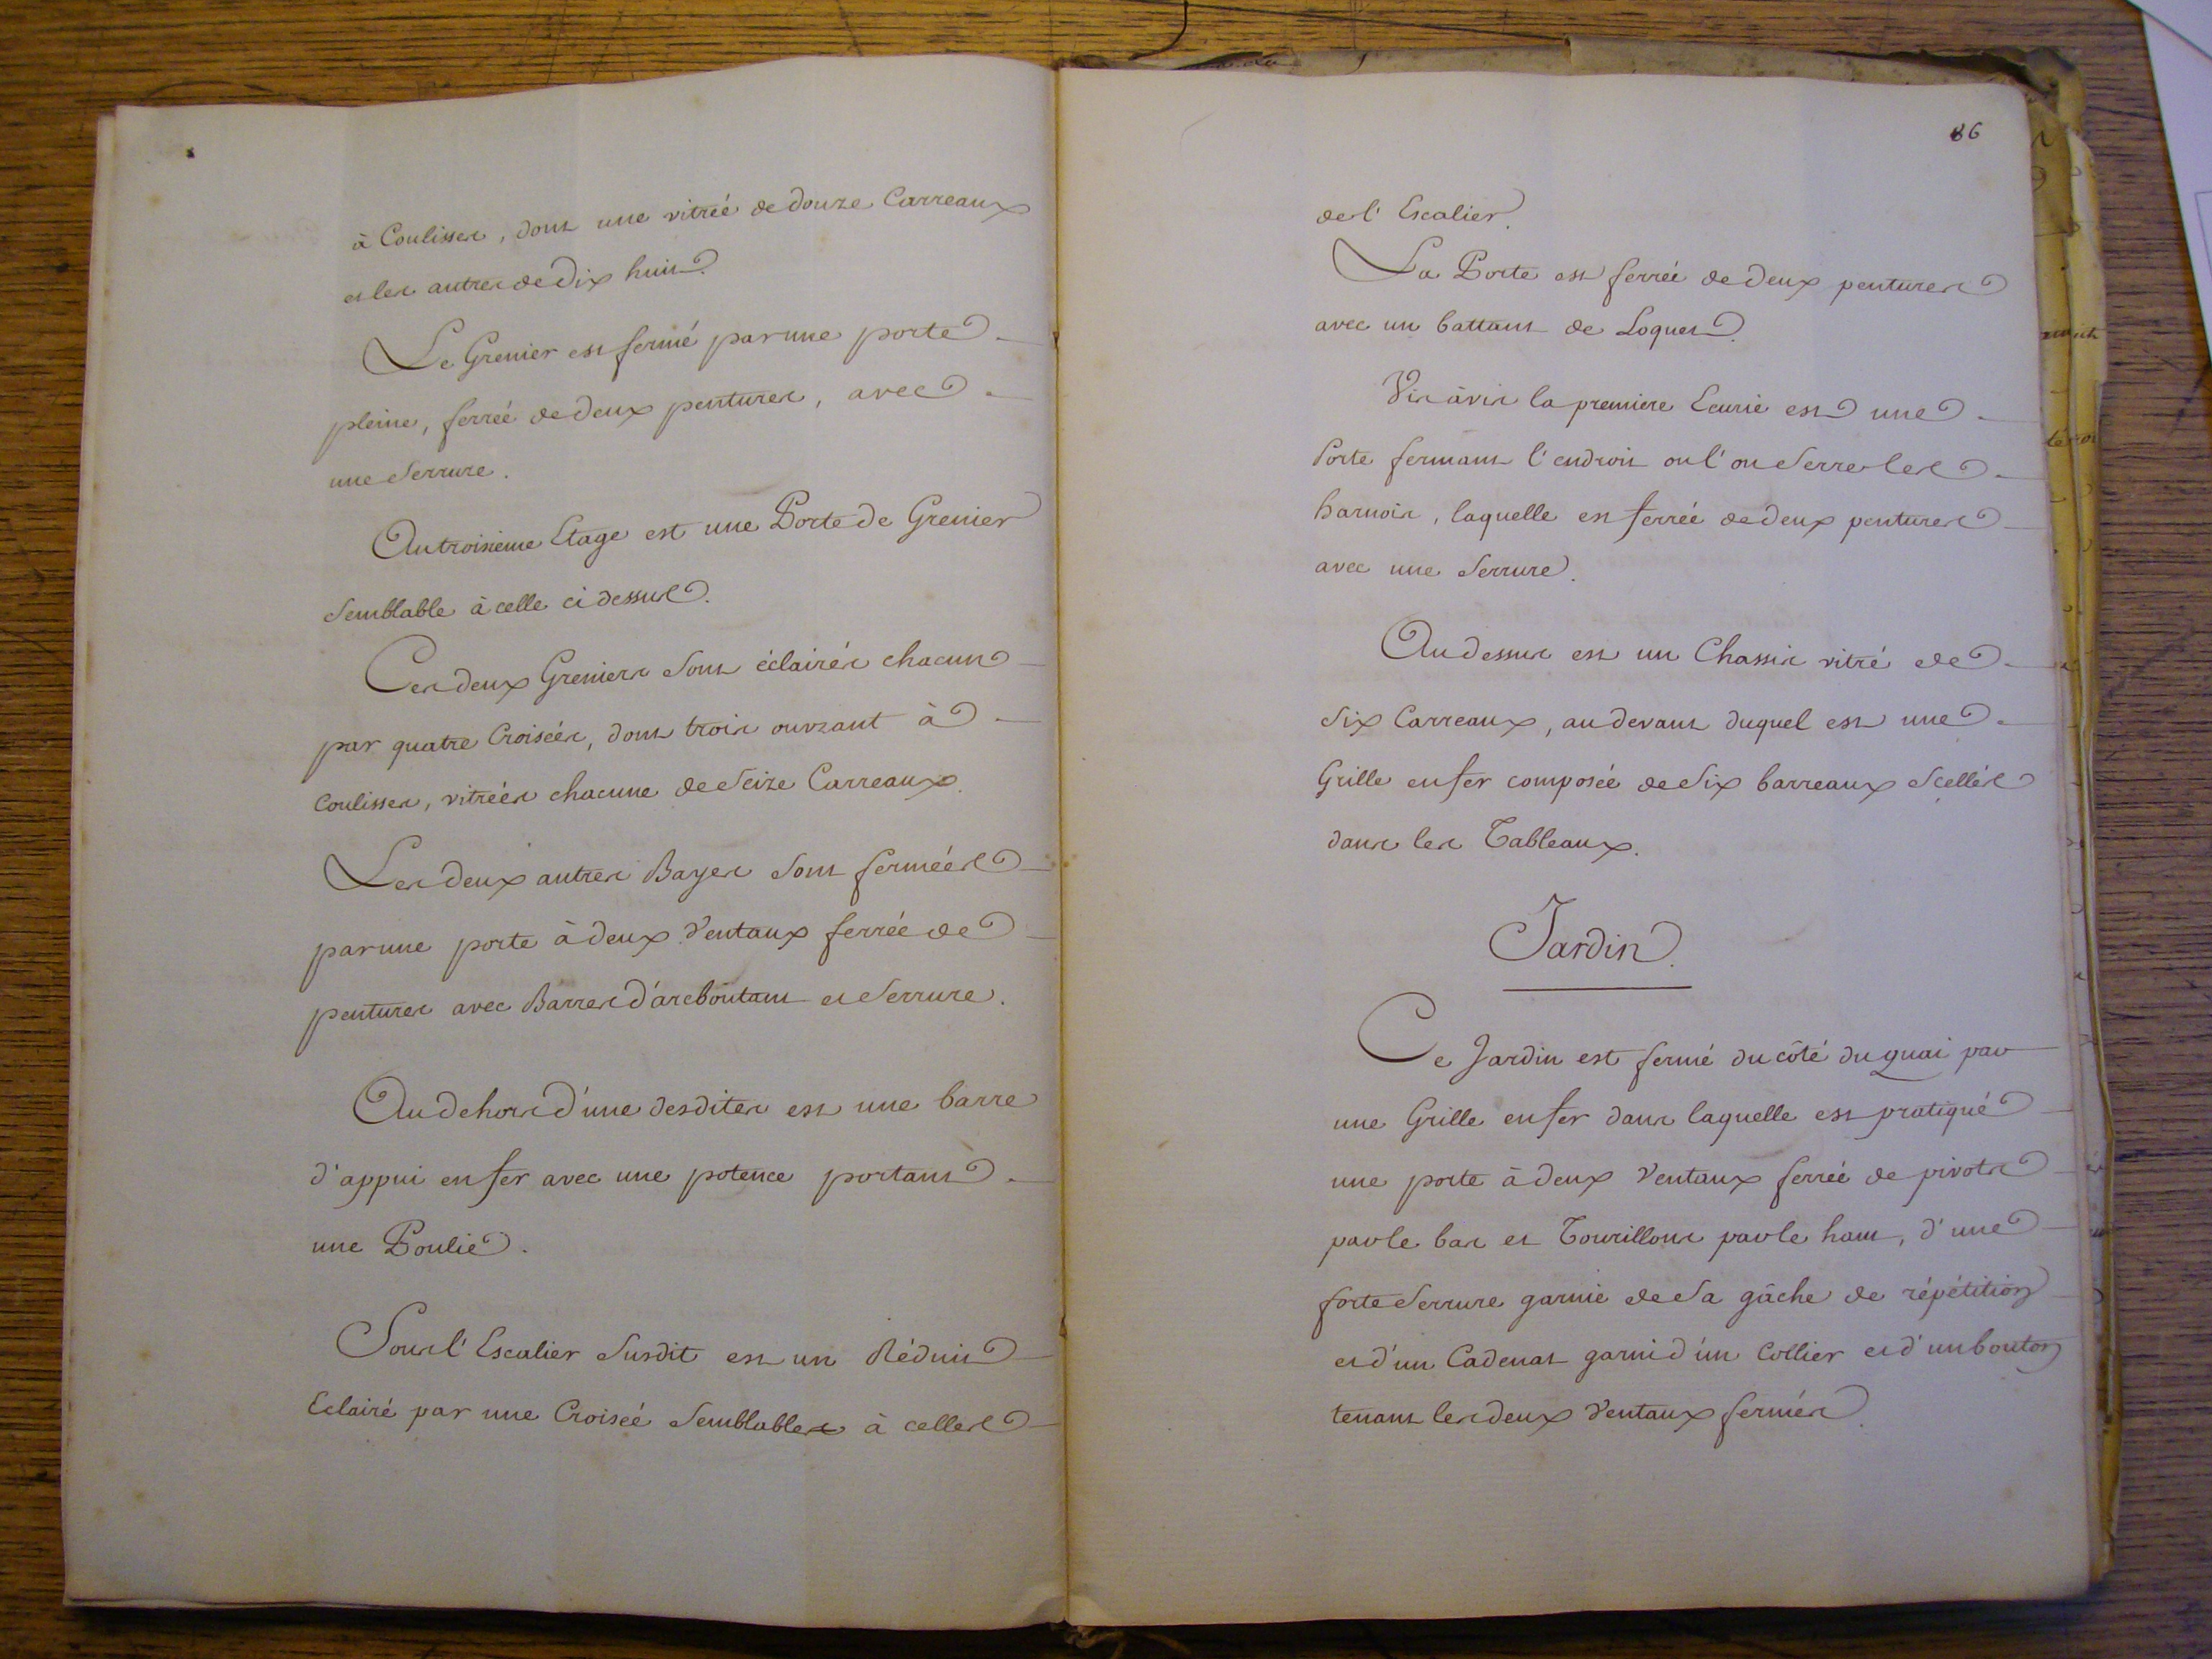 à Coulisses, dont une vitreé de douze Carreaux
et les autres de Dix huit.
Le Grenier est fermé par une porte
pleine, ferreé de deux pentures, avec
une Serrure.
Au troisieme Etage est une Porte de Grenier
Semblable à celle ci dessus.
Ces deux Greniers Sont éclairés chacun
par quatre Croiseés, dont trois ouvrant à
Coulisses, vitreés chacune de Seize Carreaux.
Les deux autres Bayes Sont fermeés
par une porte à deux Ventaux ferreé de
pentures avec Barres d'arcboutant et Serrure.
Au dehors d'une desdites est une barre
d'appui en fer avec une potence portant
une Poulie.
Sous l'Escalier Susdit est un Réduit
Eclairé par une Croiseé Semblables à celles
86
de l'Escalier.
La Porte est ferreé de deux pentures
avec un battant de Loquet.
Vis à vis la premiere Ecurie est une
Porte fermant l'endroit ou l'on Serre les
harnois, laquelle est ferreé de deux pentures
avec une Serrure.
Au dessus est un Chassis vitré de
Six Carreaux, au devant duquel est une
Grille en fer composeé de Six barreaux Scellés
dans les Tableaux.
Jardin.
Ce Jardin est fermé du côté du quai par
une Grille en fer dans laquelle est pratiqué
une porte à deux Ventaux ferreé de pivots
par le bas et Tourillons par le haut, d'une
forte Serrure garnie de Sa gâche de répétition
et d'un Cadenat garni d'un Collier et d'un bouton
tenant les deux Ventaux fermés.